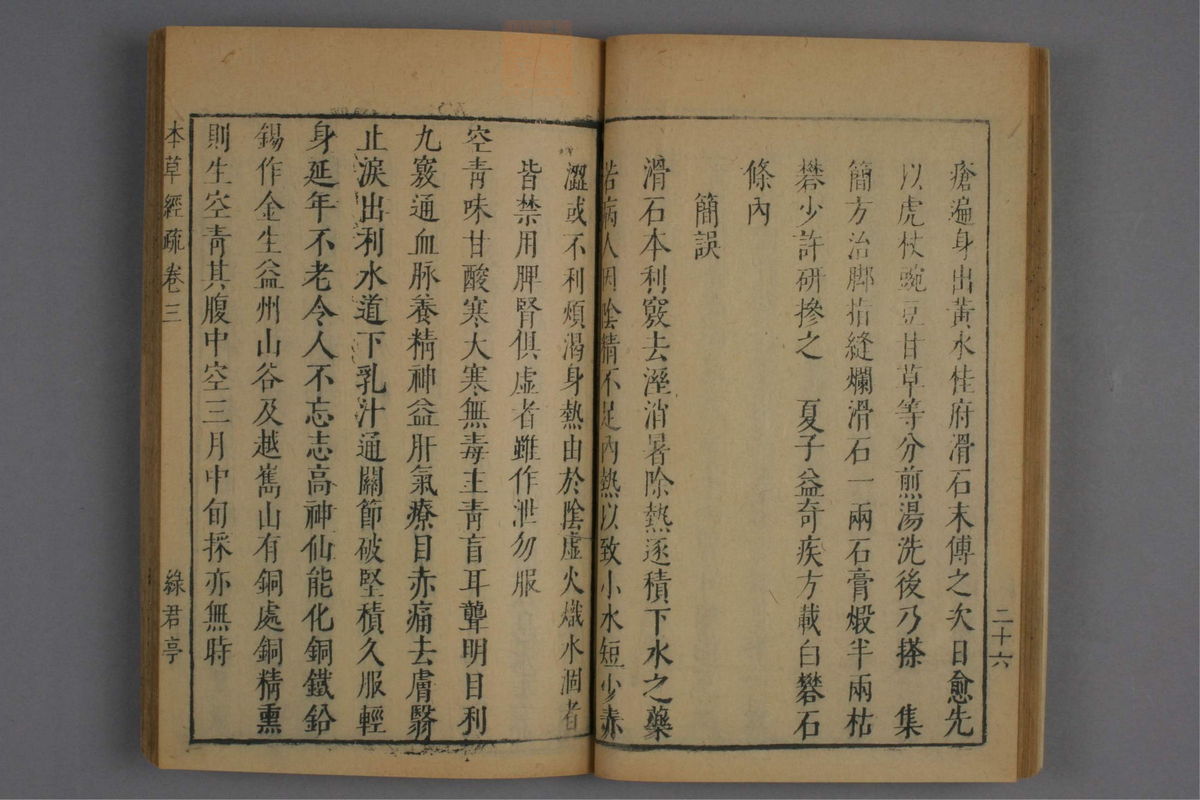 二十六
瘡遍身出黃水桂府滑石末傅之次日愈先
以虎杖豌豆甘草等分煎湯洗後乃搽　集
簡方治脚指縫爛滑石一兩石膏煅半兩枯
礬少許研摻之　夏子益奇疾方載白礬石
條內
簡誤
滑石本利竅去溼消暑除熱逐積下水之藥
若病人因陰精不足內熱以致小水短少赤
澀或不利煩渴身熱由於陰虛火熾水涸者
皆禁用脾腎俱虛者雖作泄勿服
空青味甘酸寒大寒無毒主青盲耳聾明目利
九竅通血脉養精神益肝氣療目赤痛去膚翳
止淚出利水道下乳汁通關節破堅積久服輕
身延年不老令人不忘志高神仙能化銅鐵鉛
錫作金生益州山谷及越嶲山有銅處銅精熏
則生空青其腹中空三月中旬採亦無時
本草經疏卷三
綠君亭